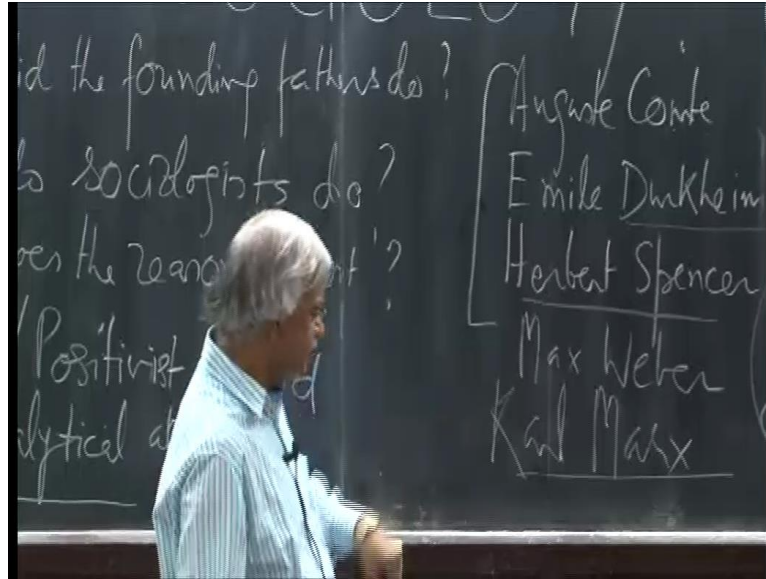 id the founding fathers do?
do sociologists do?
oes the reaso nt'?
/Positivist d
alytical a
Auguste Comte
Emile Durkheim
Herbert Spencer
Max Weber
Karl Marx